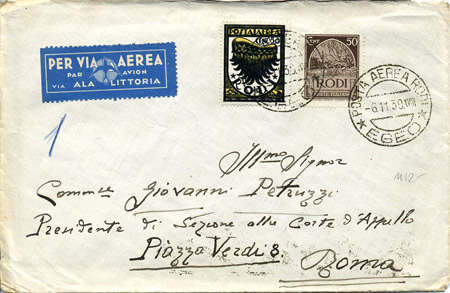 PER VIA AEREA
PAR AVION
VIA ALA LITTORIA
POSTA AEREA
CENT 50
RODI
POSTA AEREA RODI
-6.11.39.XVIII
* EGEO *
1
Illmo Signor
Giovanni Petruzzi
Presidente di Sezione alla Corte d'Appello
Piazza Verdi 8.
Roma